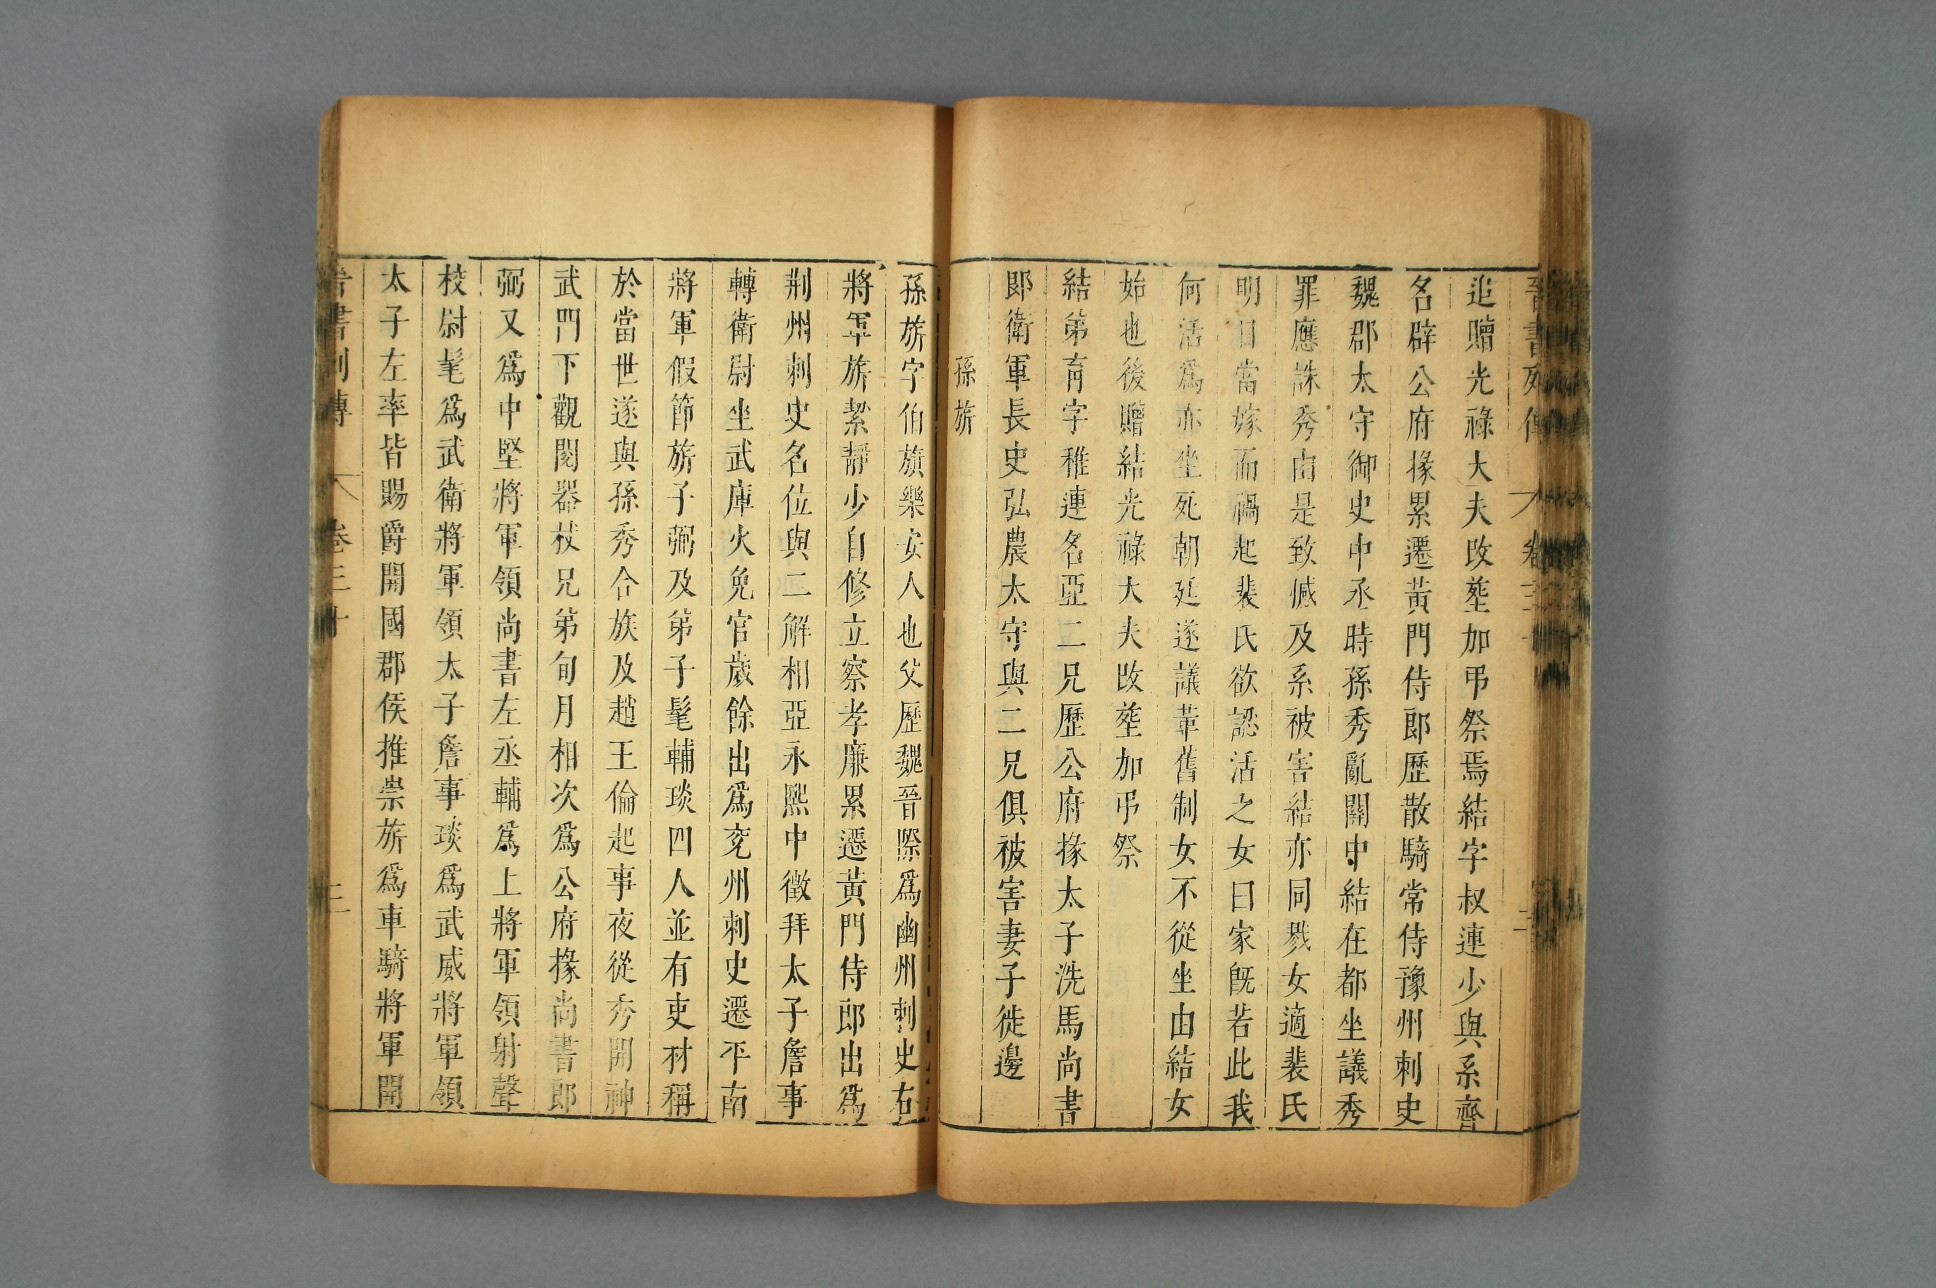 晉書列傳 卷三十 二
追贈光祿大夫改塟加弔祭焉結字叔連少與系齊
名辟公府掾累遷黃門侍郎歷散騎常侍豫州刺史
魏郡太守御史中丞時孫秀亂關中結在都坐議秀
罪應誅秀由是致憾及系被害結亦同戮女適裴氏
明日當嫁而禍起裴氏欲認活之女曰家旣若此我
何活爲亦坐死朝廷遂議革舊制女不從坐由結女
始也後贈結光祿大夫改塟加弔祭
結弟育字稚連名亞二兄歷公府掾太子洗馬尚書
郎衛軍長史弘農太守與二兄俱被害妻子徙邊
孫旂
孫旂字伯旗樂安人也父歷魏晉際爲幽州刺史右
將軍旂絜靜少自修立察孝廉累遷黃門侍郎出爲
荆州刺史名位與二解相亞永熙中徵拜太子詹事
轉衛尉坐武庫火免官歲餘出爲兖州刺史遷平南
將軍假節旂子弼及弟子髦輔琰四人並有吏材稱
於當世遂與孫秀合族及趙王倫起事夜從秀開神
武門下觀閱器杖兄弟旬月相次爲公府掾尚書郎
弼又爲中堅將軍領尚書左丞輔爲上將軍領射聲
校尉髦爲武衛將軍領太子詹事琰爲武威將軍領
太子左率皆賜爵開國郡侯推崇旂爲車騎將軍開
晉書列傳 卷三十 三